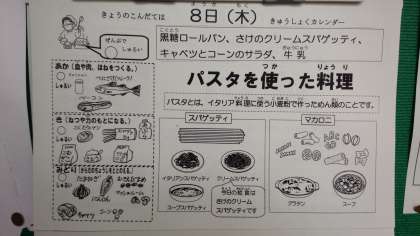 きょうのこんだては 8日(木) きゅうしょくカレンダー
黒糖ロールパン、さけのクリームスパゲッティ、
キャベツとコーンのサラダ、牛乳
ぜんぶで
しゅるい
パスタを使った料理
パスタとは、イタリア料理に使う小麦粉で作っためん類のことです。
あか(血や肉、ほねをつくる。)
しゅるい
き(ねつや力のもとになる。)
しゅるい
みどり
しゅるい
たまねぎ
にんじん
キャベツ
コーン
スパゲッティ
イタリアンスパゲッティ
クリームスパゲッティ
スープスパゲッティ
今日の給食は
さけのクリーム
スパゲッティです
マカロニ
グラタン
スープ